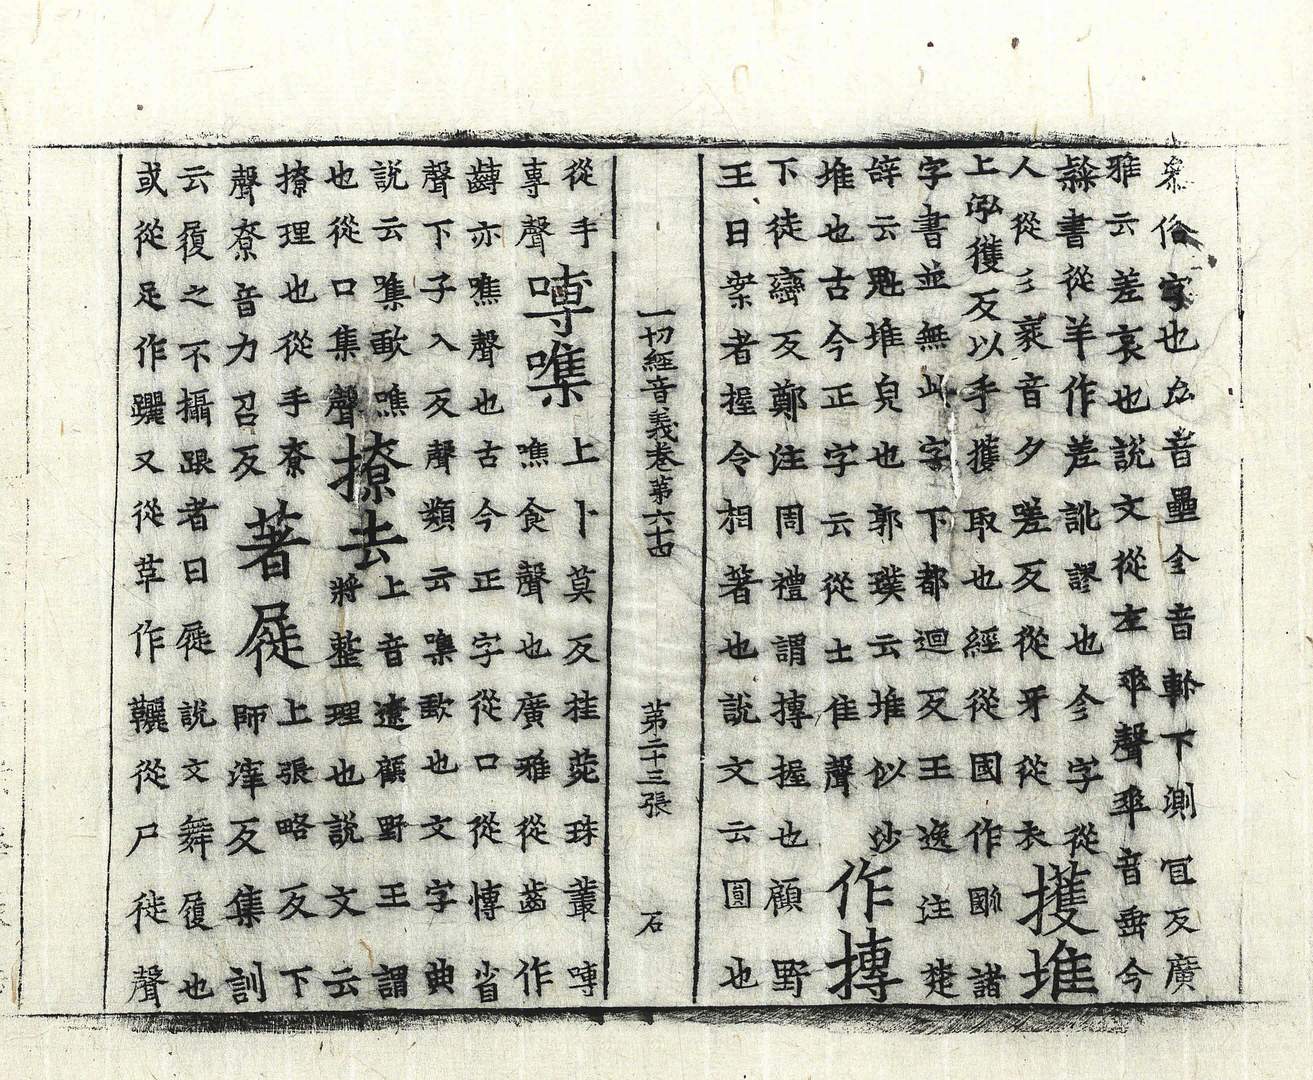 俗字也厽音壘全音軡下測冝反廣
雅云差哀也說文從左𠂹聲𠂹音垂今
𨽻書從羊作差訛謬也今字從
人從彡衺音夕嗟反從牙從衣 擭堆
上泓獲反以手擭取也經從國作𢧌諸
字書並無此字下都迴反王逸注楚
辝云魁堆皃也郭璞云堆似沙
堆也古今正字云從土隹聲 作摶
下徒巒反鄭注周禮謂摶握也顧野
王曰案者握令相著也說文云圓也
一切經音義卷第六十四 第二十三張 石
從手
專聲 嚩噍 上卜莫反挂菀珠叢嚩
噍食聲也廣雅從齒作
䶈亦噍聲也古今正字從口從愽省
聲下子入反聲類云噍歃也文字典
說云噍歃噍
也從口集聲 撩去 上音遼顧野王謂
將整理也說文云
撩理也從手尞
聲尞音力召反 著屣 上張略反下
師滓反集訓
云履之不攝跟者曰屣說文舞履也
或從足作躧又從革作韆從尸徙聲